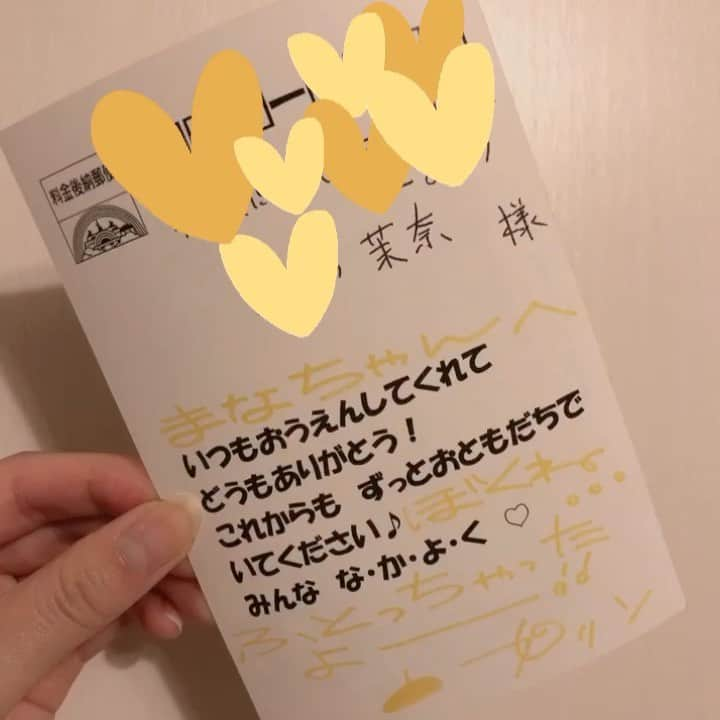 料金後納郵便
茉奈 様
まなちゃんへ
いつもおうえんしてくれて
どうもありがとう!
これからも ずっとおともだちで
いてください♪ ぼくねー...
みんな な・か・よ・く ♡
ふとっちゃった
よー!!
プリン